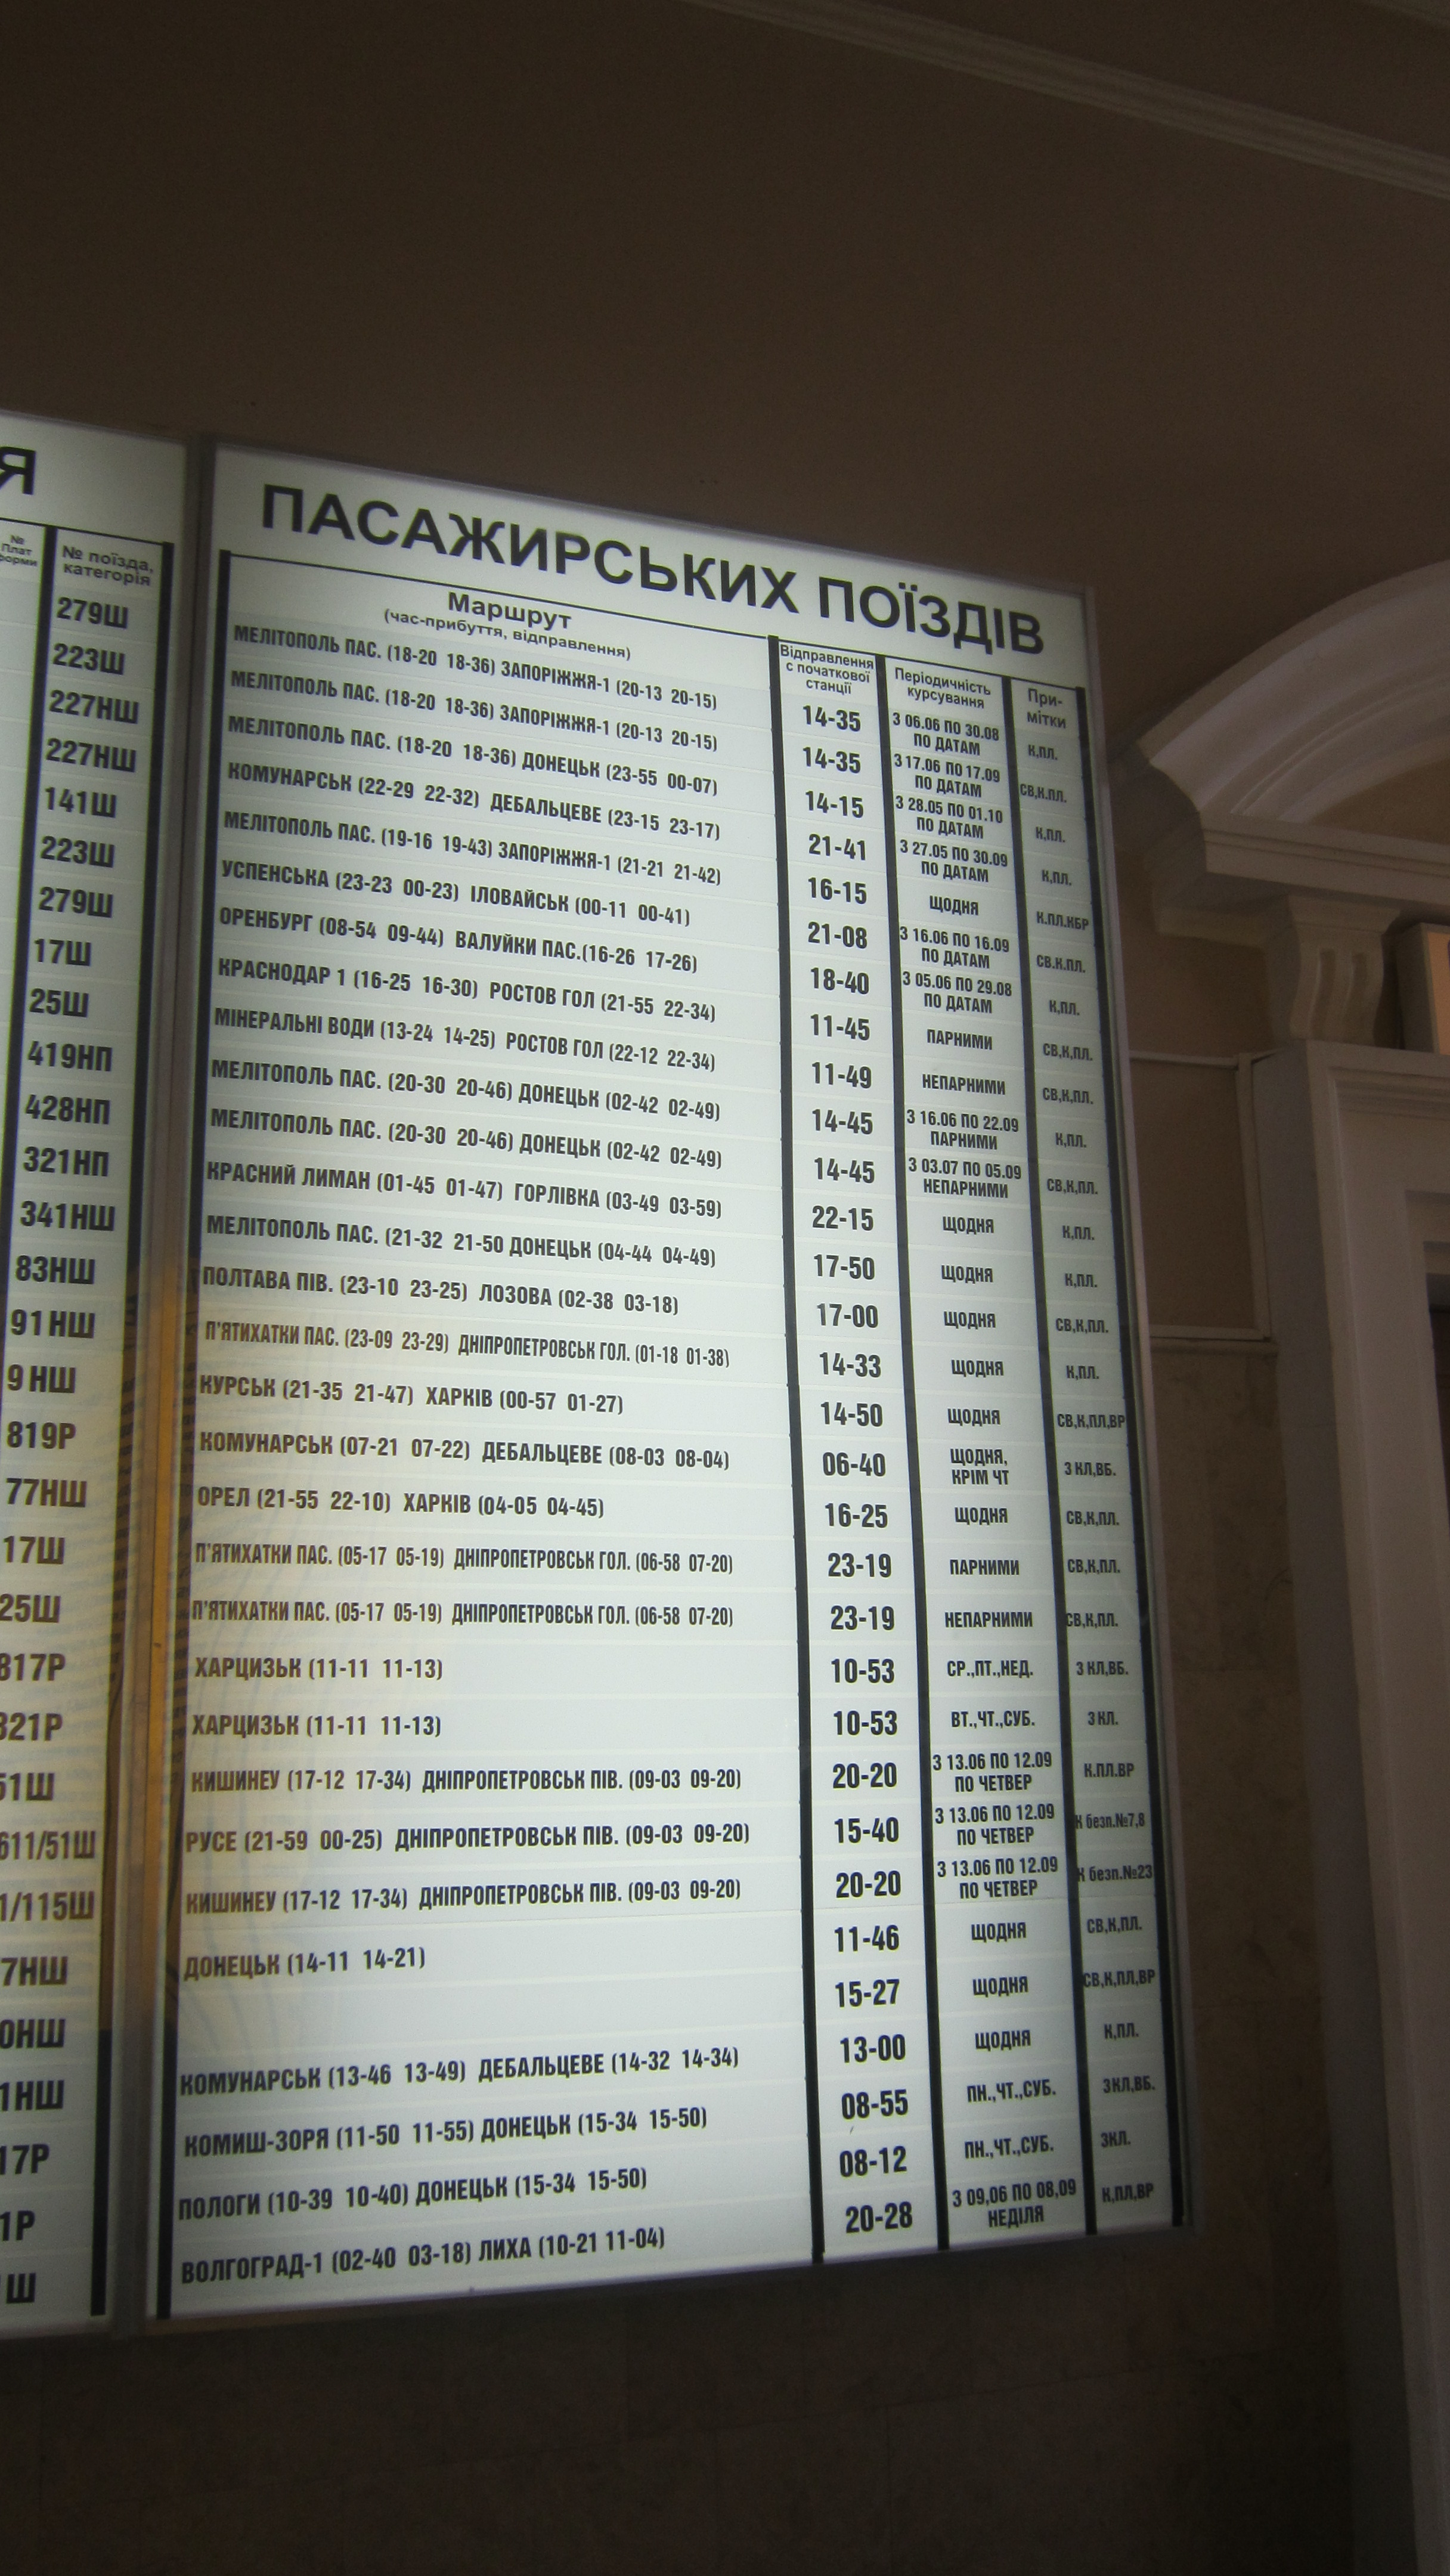 Я
№
Плат
форми
№ поїзда,
категорія
279Ш
223Ш
227НШ
227НШ
141Ш
223Ш
279Ш
17Ш
25Ш
419НП
428НП
321НП
341НШ
83НШ
91НШ
9 НШ
819Р
77НШ
17Ш
25Ш
817Р
321Р
51Ш
611/51Ш
1/115Ш
7НШ
0НШ
1НШ
17Р
1Р
Ш
ПАСАЖИРСЬКИХ ПОЇЗДІВ
Маршрут
(час-прибуття, відправлення)
Відправлення
с початкової
станції
Періодичність
курсування
При-
мітки
МЕЛІТОПОЛЬ ПАС. (18-20 18-36) ЗАПОРІЖЖЯ-1 (20-13 20-15) 14-35 З 06.06 ПО 30.08
ПО ДАТАМ К,ПЛ.
МЕЛІТОПОЛЬ ПАС. (18-20 18-36) ЗАПОРІЖЖЯ-1 (20-13 20-15) 14-35 З 17.06 ПО 17.09
ПО ДАТАМ СВ,К.ПЛ.
МЕЛІТОПОЛЬ ПАС. (18-20 18-36) ДОНЕЦЬК (23-55 00-07) 14-15 З 28.05 ПО 01.10
ПО ДАТАМ К,ПЛ.
КОМУНАРСЬК (22-29 22-32) ДЕБАЛЬЦЕВЕ (23-15 23-17) 21-41 З 27.05 ПО 30.09
ПО ДАТАМ К,ПЛ.
МЕЛІТОПОЛЬ ПАС. (19-16 19-43) ЗАПОРІЖЖЯ-1 (21-21 21-42) 16-15 ЩОДНЯ К.ПЛ.КБР
УСПЕНСЬКА (23-23 00-23) ІЛОВАЙСЬК (00-11 00-41) 21-08 З 16.06 ПО 16.09
ПО ДАТАМ СВ.К.ПЛ.
ОРЕНБУРГ (08-54 09-44) ВАЛУЙКИ ПАС.(16-26 17-26) 18-40 З 05.06 ПО 29.08
ПО ДАТАМ К,ПЛ.
КРАСНОДАР 1 (16-25 16-30) РОСТОВ ГОЛ (21-55 22-34) 11-45 ПАРНИМИ СВ,К,ПЛ.
МІНЕРАЛЬНІ ВОДИ (13-24 14-25) РОСТОВ ГОЛ (22-12 22-34) 11-49 НЕПАРНИМИ СВ,К,ПЛ.
МЕЛІТОПОЛЬ ПАС. (20-30 20-46) ДОНЕЦЬК (02-42 02-49) 14-45 З 16.06 ПО 22.09
ПАРНИМИ К,ПЛ.
МЕЛІТОПОЛЬ ПАС. (20-30 20-46) ДОНЕЦЬК (02-42 02-49) 14-45 З 03.07 ПО 05.09
НЕПАРНИМИ СВ,К,ПЛ.
КРАСНИЙ ЛИМАН (01-45 01-47) ГОРЛІВКА (03-49 03-59) 22-15 ЩОДНЯ К,ПЛ.
МЕЛІТОПОЛЬ ПАС. (21-32 21-50 ДОНЕЦЬК (04-44 04-49) 17-50 ЩОДНЯ К,ПЛ.
ПОЛТАВА ПІВ. (23-10 23-25) ЛОЗОВА (02-38 03-18) 17-00 ЩОДНЯ СВ,К,ПЛ.
П'ЯТИХАТКИ ПАС. (23-09 23-29) ДНІПРОПЕТРОВСЬК ГОЛ. (01-18 01-38) 14-33 ЩОДНЯ К,ПЛ.
КУРСЬК (21-35 21-47) ХАРКІВ (00-57 01-27) 14-50 ЩОДНЯ СВ,К,ПЛ,ВР
КОМУНАРСЬК (07-21 07-22) ДЕБАЛЬЦЕВЕ (08-03 08-04) 06-40 ЩОДНЯ,
КРІМ ЧТ 3 КЛ,ВБ.
ОРЕЛ (21-55 22-10) ХАРКІВ (04-05 04-45) 16-25 ЩОДНЯ СВ,К,ПЛ.
П'ЯТИХАТКИ ПАС. (05-17 05-19) ДНІПРОПЕТРОВСЬК ГОЛ. (06-58 07-20) 23-19 ПАРНИМИ СВ,К,ПЛ.
П'ЯТИХАТКИ ПАС. (05-17 05-19) ДНІПРОПЕТРОВСЬК ГОЛ. (06-58 07-20) 23-19 НЕПАРНИМИ СВ,К,ПЛ.
ХАРЦИЗЬК (11-11 11-13) 10-53 СР.,ПТ.,НЕД. 3 КЛ,ВБ.
ХАРЦИЗЬК (11-11 11-13) 10-53 ВТ.,ЧТ.,СУБ. 3 КЛ.
КИШИНЕУ (17-12 17-34) ДНІПРОПЕТРОВСЬК ПІВ. (09-03 09-20) 20-20 З 13.06 ПО 12.09
ПО ЧЕТВЕР К.ПЛ.ВР
РУСЕ (21-59 00-25) ДНІПРОПЕТРОВСЬК ПІВ. (09-03 09-20) 15-40 З 13.06 ПО 12.09
ПО ЧЕТВЕР К безп.№7,8
КИШИНЕУ (17-12 17-34) ДНІПРОПЕТРОВСЬК ПІВ. (09-03 09-20) 20-20 З 13.06 ПО 12.09
ПО ЧЕТВЕР К безп.№23
ДОНЕЦЬК (14-11 14-21) 11-46 ЩОДНЯ СВ,К,ПЛ.
15-27 ЩОДНЯ СВ,К,ПЛ,ВР
КОМУНАРСЬК (13-46 13-49) ДЕБАЛЬЦЕВЕ (14-32 14-34) 13-00 ЩОДНЯ К,ПЛ.
КОМИШ-ЗОРЯ (11-50 11-55) ДОНЕЦЬК (15-34 15-50) 08-55 ПН.,ЧТ.,СУБ. 3КЛ,ВБ.
ПОЛОГИ (10-39 10-40) ДОНЕЦЬК (15-34 15-50) 08-12 ПН.,ЧТ.,СУБ. 3КЛ.
ВОЛГОГРАД-1 (02-40 03-18) ЛИХА (10-21 11-04) 20-28 З 09,06 ПО 08,09
НЕДІЛЯ К,ПЛ,ВР